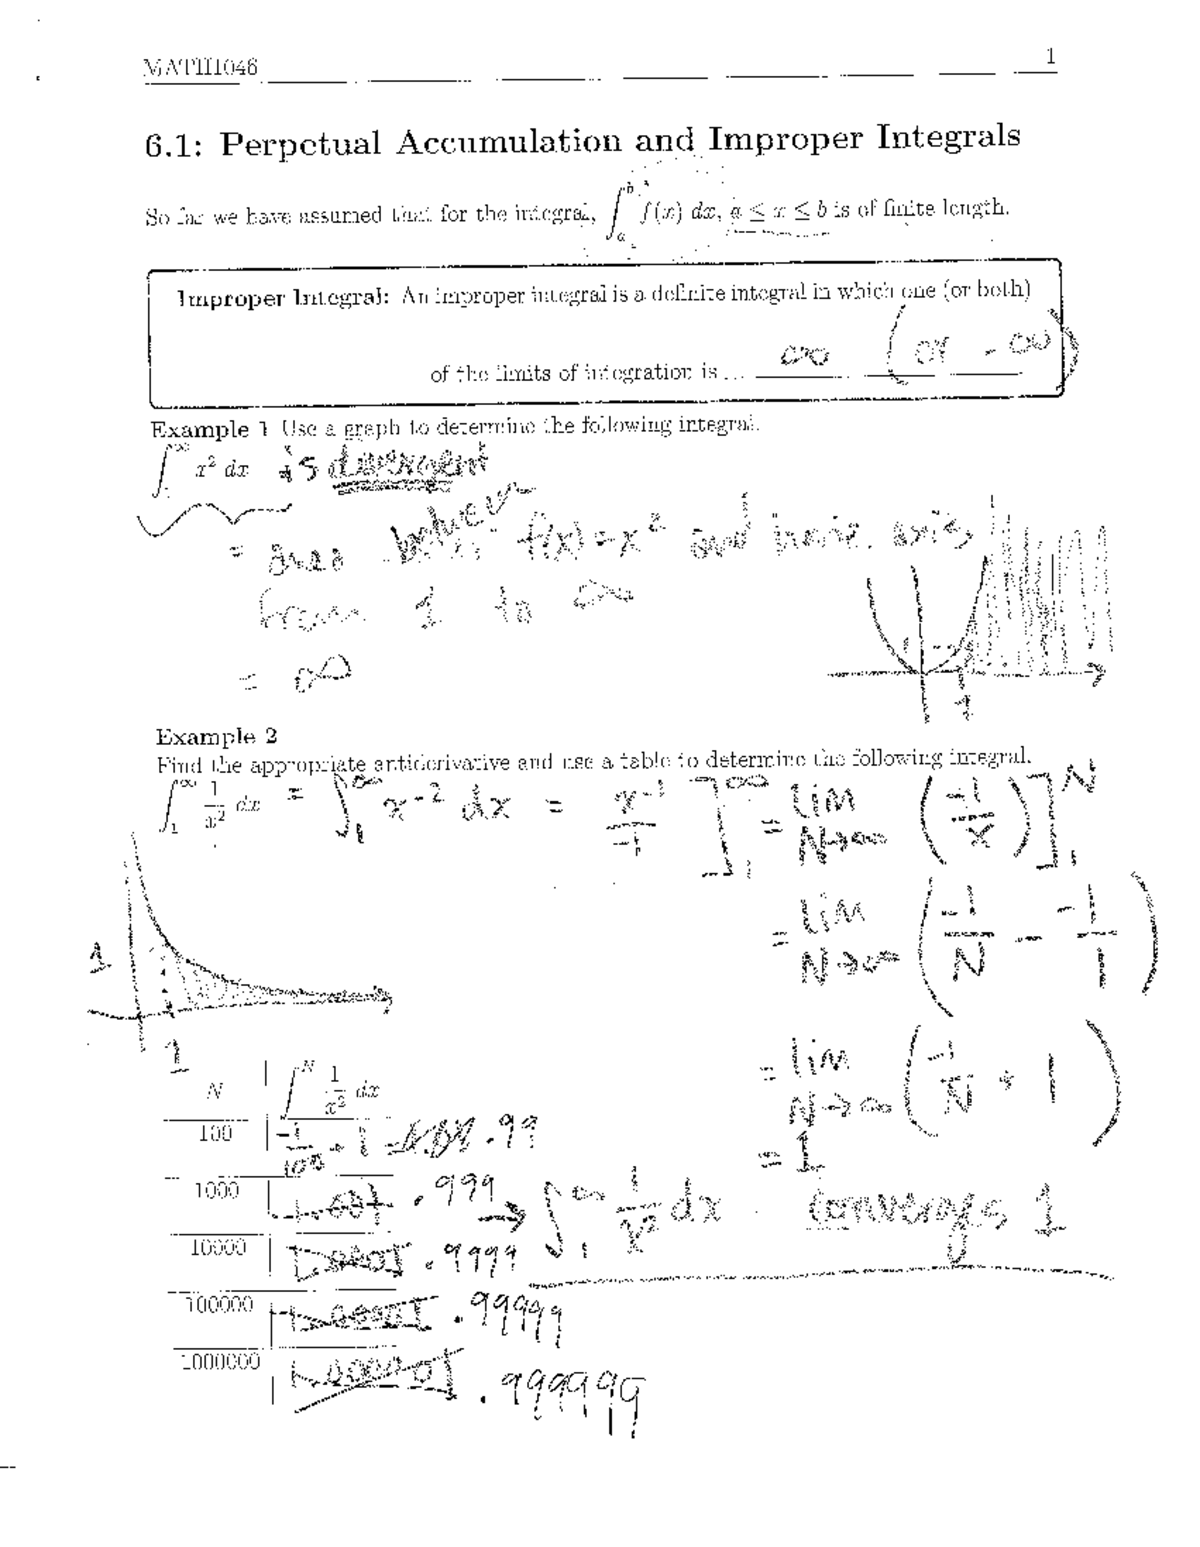 MATH1046 1
6.1: Perpetual Accumulation and Improper Integrals
So far we have assumed that for the integral, ∫_a^b f(x) dx, a ≤ x ≤ b is of finite length.
Improper Integral: An improper integral is a definite integral in which one (or both)
of the limits of integration is ... ∞ (or -∞)
Example 1 Use a graph to determine the following integral.
∫_1^∞ x² dx is divergent
= area between f(x)=x² and horiz. axis
from 1 to ∞
= ∞
1
Example 2
Find the appropriate antiderivative and use a table to determine the following integral.
∫_1^∞ 1/x² dx = ∫_1^∞ x^-2 dx = x^-1/-1 ]_1^∞ = lim N→∞ (-1/x)]_1^N
= lim N→∞ (-1/N - -1/1)
1
1
= lim N→∞ (-1/N + 1)
= 1
N ∫^N 1/x² dx
100 -1/100 + 1 .99
1000 1.001 .999 → ∫_1^∞ 1/x² dx converges 1
10000 1.0001 .9999
100000 1.00001 .99999
1000000 1.000001 .999999